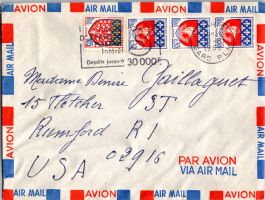 AVION AIR MAIL AVION AIR MAIL
Intérêt
Dépôts jusqu'à 30 000F
Madame Denise Gaillaguet
15 Fletcher ST
Rumford RI
USA 02916
PAR AVION
VIA AIR MAIL
AIR MAIL AVION AIR MAIL AVION AIR MAIL